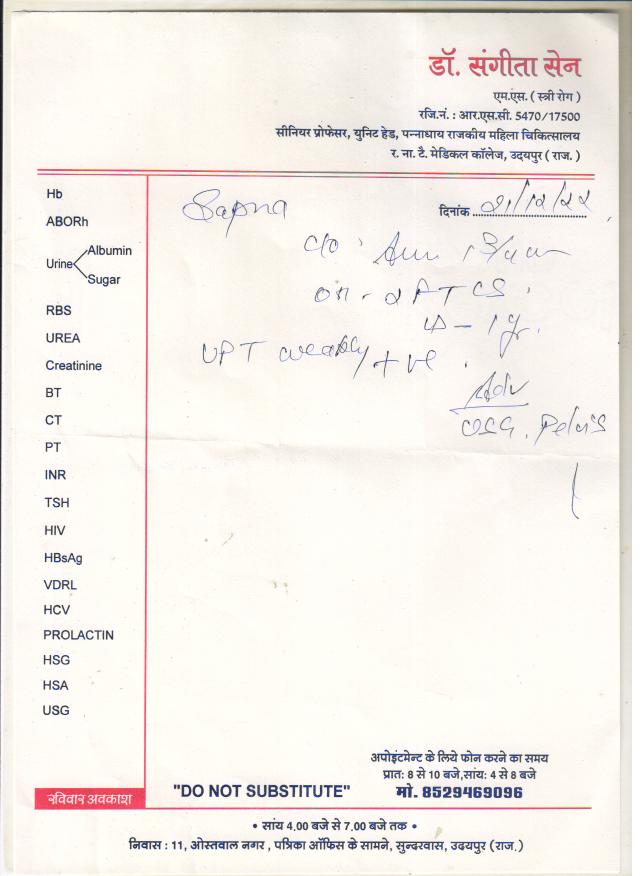 डॉ. संगीता सेन
एम.एस. ( स्त्री रोग )
रजि.नं. : आर.एस.सी. 5470/17500
सीनियर प्रोफेसर, युनिट हेड, पन्नाधाय राजकीय महिला चिकित्सालय
र. ना. टै. मेडिकल कॉलेज, उदयपुर ( राज. )
Sapna
दिनांक 21/12/22
c/o
UPT weakly +ve.
Adv
USG. Pelvis
Hb
ABORh
Urine
Albumin
Sugar
RBS
UREA
Creatinine
BT
CT
PT
INR
TSH
HIV
HBsAg
VDRL
HCV
PROLACTIN
HSG
HSA
USG
रविवार अवकाश
"DO NOT SUBSTITUTE"
अपोइंटमेन्ट के लिये फोन करने का समय
प्रात: 8 से 10 बजे,सांय: 4 से 8 बजे
मो. 8529469096
• सांय 4.00 बजे से 7.00 बजे तक •
निवास : 11, ओस्तवाल नगर , पत्रिका ऑफिस के सामने, सुन्दरवास, उदयपुर (राज.)